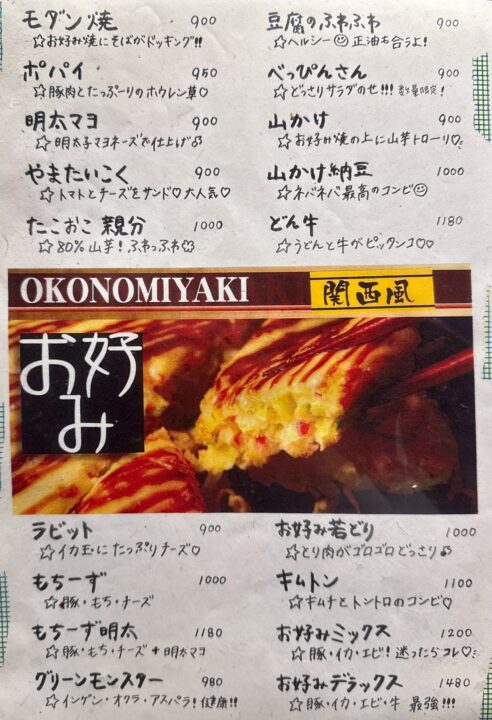 モダン焼 900
☆お好み焼にそばがドッキング!!
ポパイ 950
☆豚肉とたっぷりのホウレン草♡
明太マヨ 900
☆明太子マヨネーズで仕上げ♪
やまたいこく 900
☆トマトとチーズをサンド♡大人気♡
たこおこ 親分 1000
☆80%山芋!ふわっふわ
豆腐のふわふわ 900
☆ヘルシー☺正油も合うよ!
べっぴんさん 900
☆どっさりサラダのせ!!! 数量限定!
山かけ 900
☆お好み焼の上に山芋トローリ♡
山かけ納豆 1000
☆ネバネバ最高のコンビ☺
どん牛 1180
☆うどんと牛がピッタンコ♡♡
OKONOMIYAKI 関西風
お好み
ラビット 900
☆イカ玉にたっぷりチーズ♡
もちーず 1000
☆豚・もち・チーズ
もちーず明太 1180
☆豚・もち・チーズ+明太マヨ
グリーンモンスター 980
☆インゲン・オクラ・アスパラ!健康!!
お好み若どり 1000
☆とり肉がゴロゴロどっさり♪
キムトン 1100
☆キムチとトントロのコンビ♡
お好みミックス 1200
☆豚・イカ・エビ!迷ったらコレ♡
お好みデラックス 1480
☆豚・イカ・エビ・牛 最強!!!